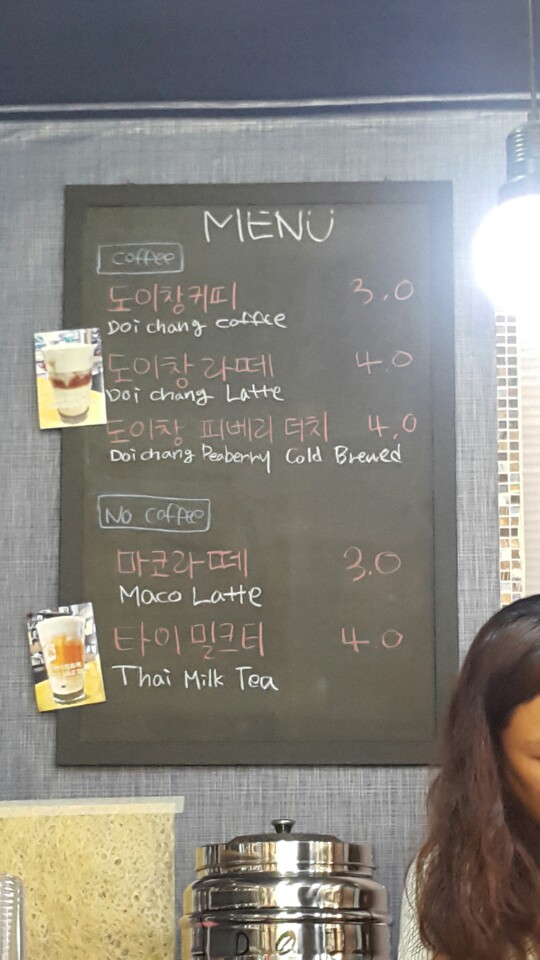 MENU
Coffee
도이창커피 3.0
Doi chang coffee
도이창 라떼 4.0
Doi chang Latte
도이창 피베리 더치 4.0
Doi chang Peaberry Cold Brewed
No Coffee
마코라떼 3.0
Maco Latte
타이 밀크티 4.0
Thai Milk Tea